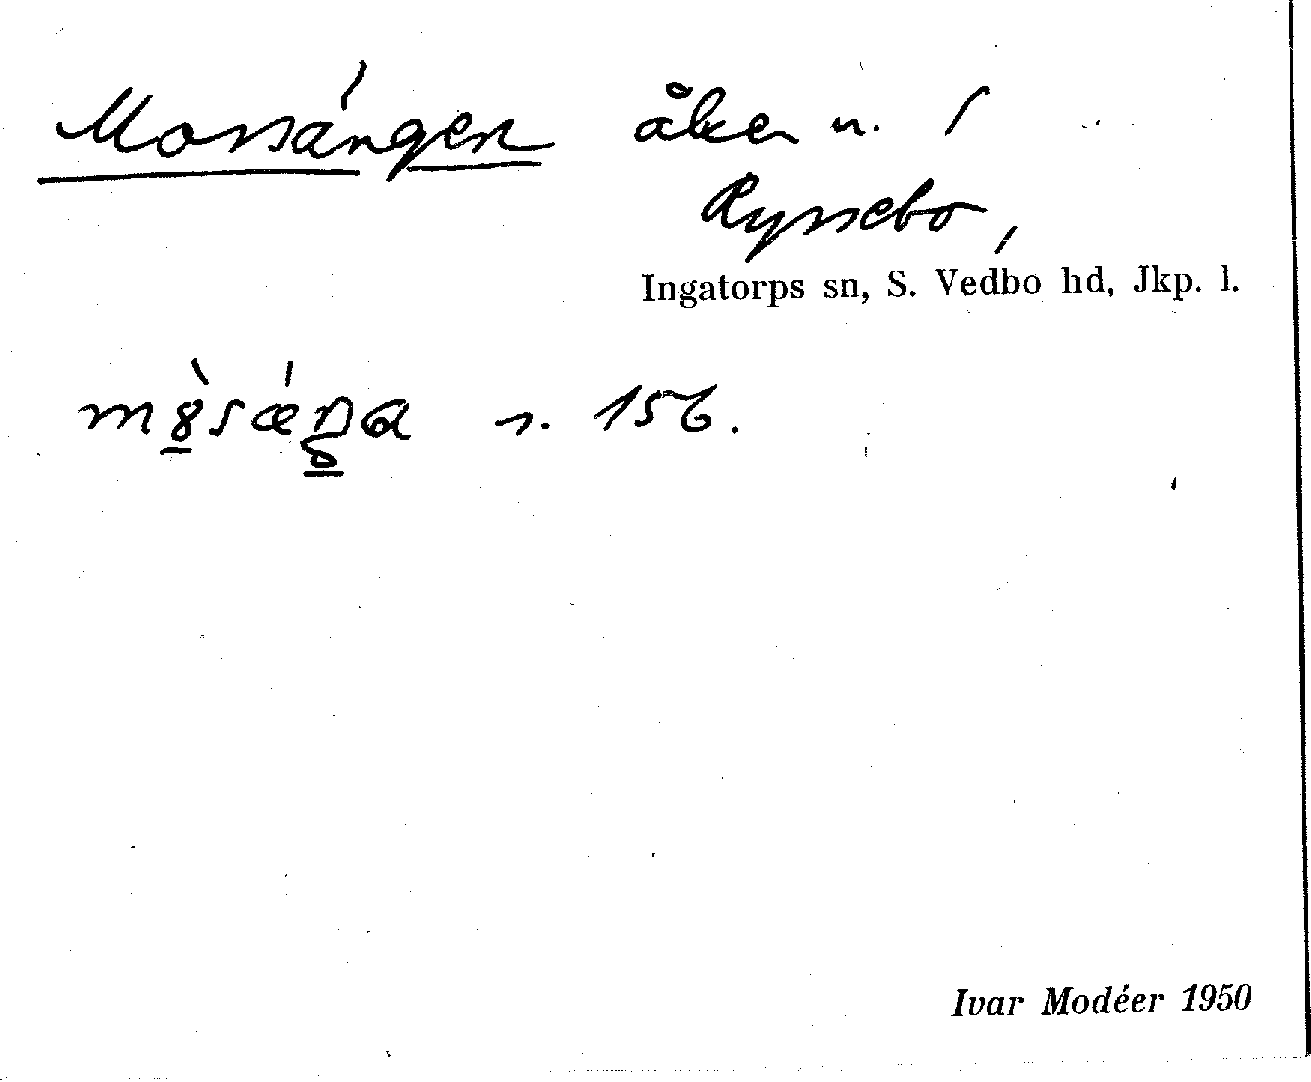 Mossängen åker n. 1
Ryssebo,
Ingatorps sn, S. Vedbo hd, Jkp. l.
s. 156.
Ivar Modéer 1950